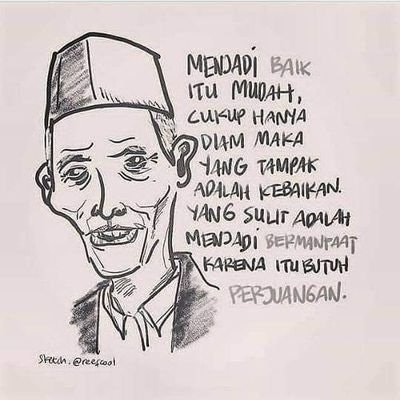 MENJADI BAIK
ITU MUDAH,
CUKUP HANYA
DIAM MAKA
YANG TAMPAK
ADALAH KEBAIKAN.
YANG SULIT ADALAH
MENJADI BERMANFAAT
KARENA ITU BUTUH
PERJUANGAN.
Sketch. @reescool